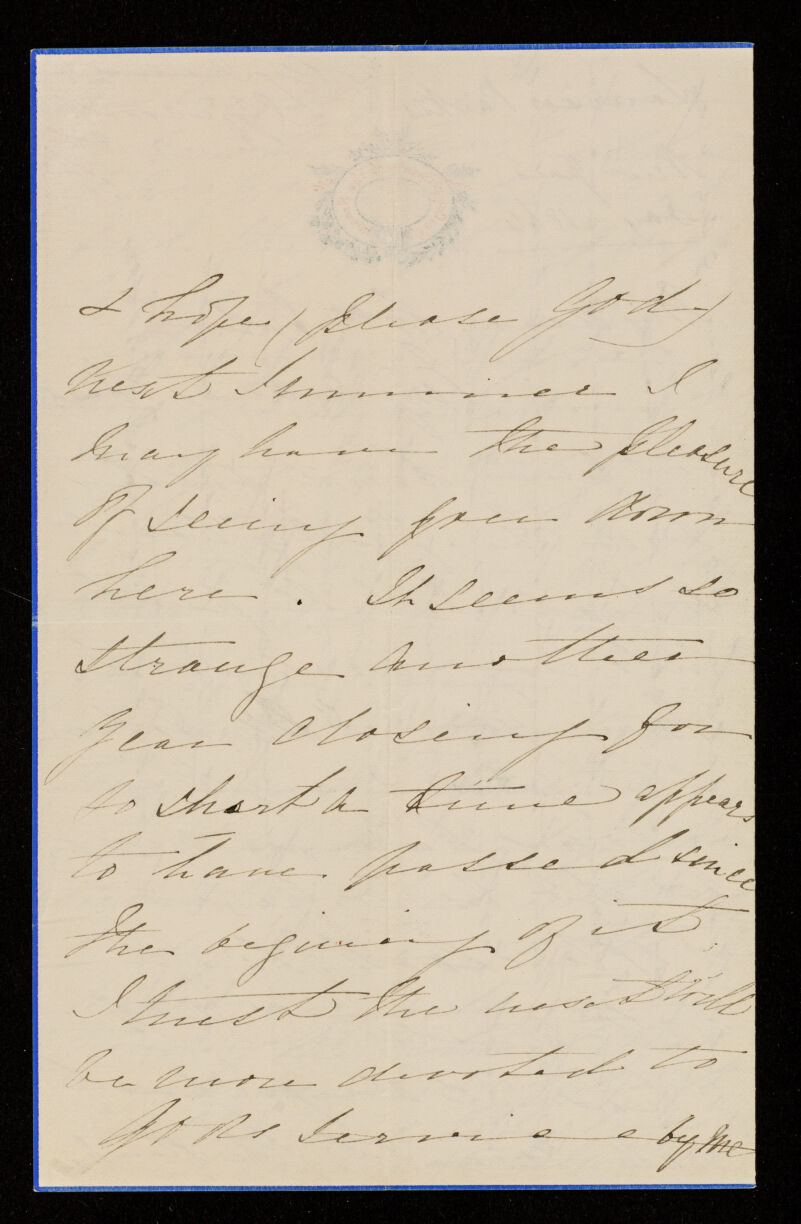 & hope (please God)
next Summer I
may have the pleasure
of seeing you down
here. It seems so
strange another
year closing for
so short a time appears
to have passed since
the begining of it,
I trust the next will
be more devoted to
Gods service by me